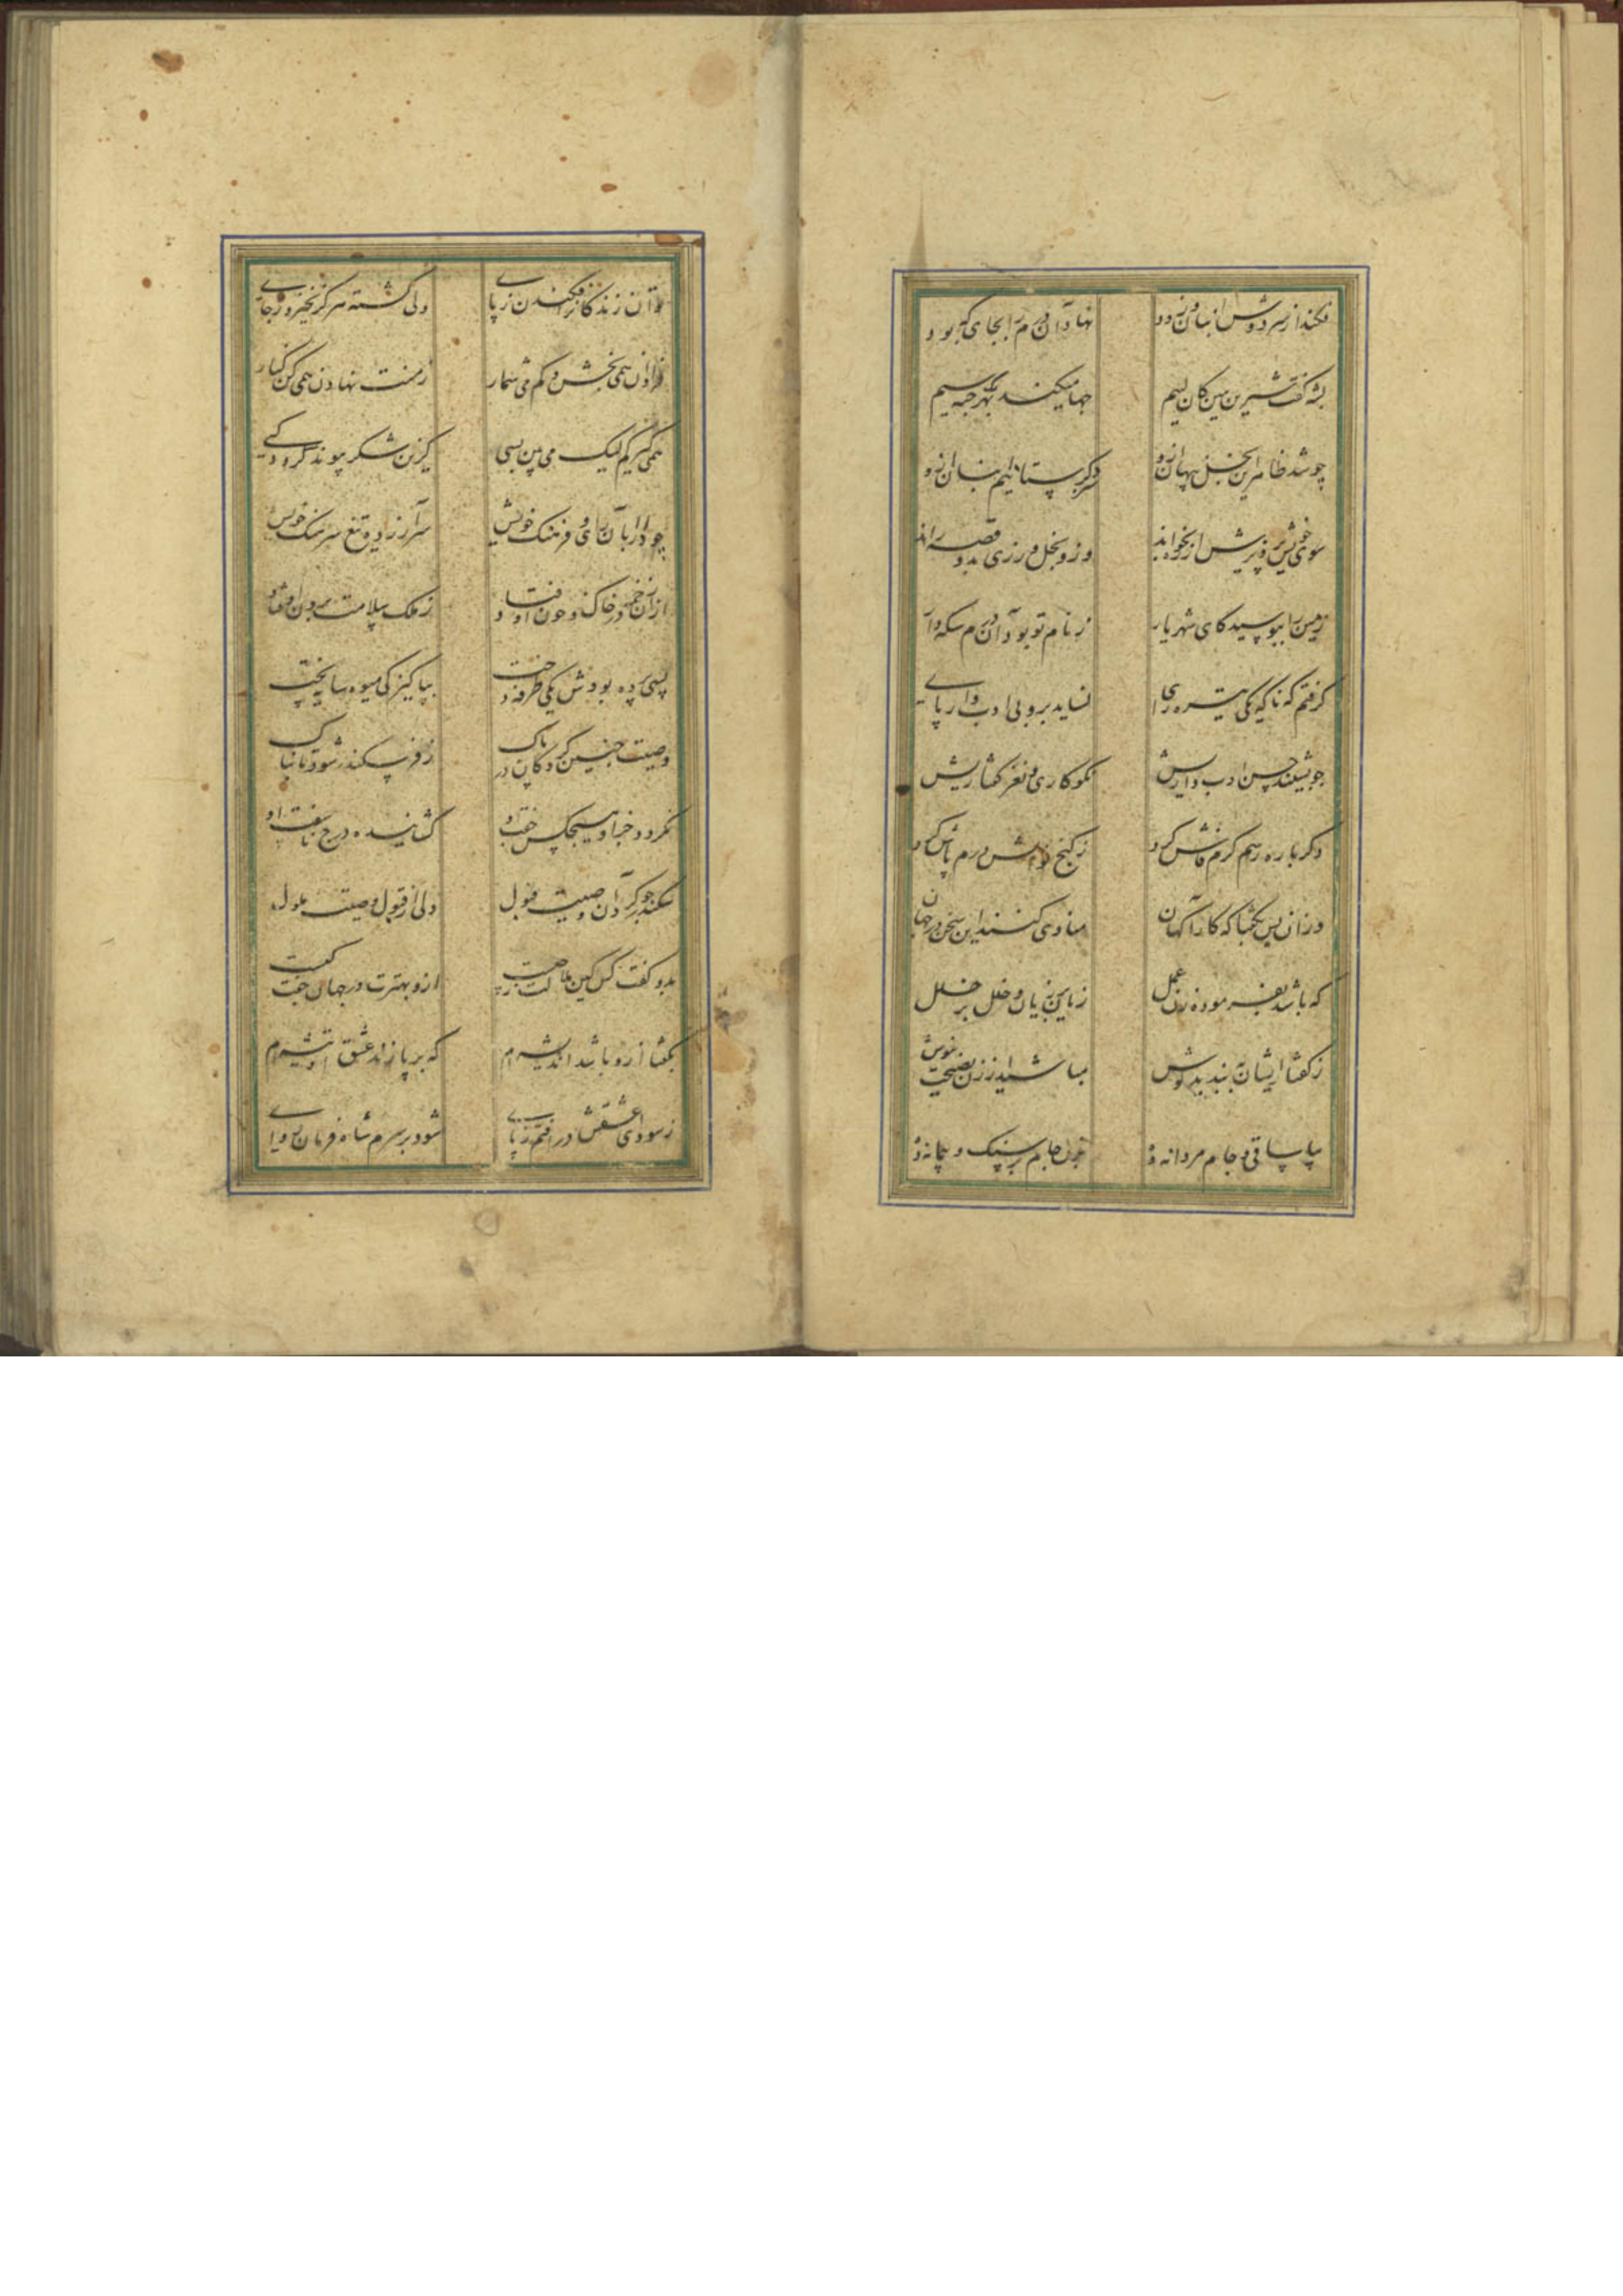 فکند از سر دوش انبان زود نهاد آن درم را بجای که بود
بشه گفت شیرین ببین کان لئیم چها میکند بهر یک حبه سیم
چو شد ظاهر این بخل پنهان ازو دگرباره بستانیم انبان ازو
سوی خویش پرویزش از ره بخواند وزو بخل ورزی بدو قصه راند
زمین را ببوسید کای شهریار ز نام تو بود آن درم سکه دار
گرفتم که ناگه یکی تیره رای نساید برو بی ادب وار پای
چو بشنید حسن ادب داریش نکوکاری و نغز گفتاریش
دگرباره رسم کرم فاش کرد ز گنج نوالش درم پاش کرد
وزان پس بگفتا که کارآگهان منادی کنند این سخن در جهان
که باشد بفرموده زن عمل زیان بر زیان و خلل بر خلل
ز گفتار ایشان ببندید گوش مباشید از زن نصیحت نیوش
بیا ساقی و جام مردانه ده بزن جام بر سنگ و پیمانه ده
توان زندگان را فکندن ز پای ولی کشته هرگز نخیزد ز جای
فراوان همی بخش و کم می شمار ز منت نهادن همی کن کنار
همی گیر کم لیک می بین بسی کزین شکر پیوند گردد کسی
چو دارا بآن رای و فرهنگ خویش سرآزرده تیغ سرهنگ خویش
از آن زخم در خاک و خون اوفتاد ز ملک سلامت برون اوفتاد
پس پرده بودش یکی طرفه دخت بپاکیزگی میوه سایه پخت
وصیت چنین کرد کان در پاک ز فر سکندر شود تابناک
نگردد جز او هیچکس جفت او گشاینده درج ناسفت او
سکندر چو کرد آن وصیت قبول ولی از قبول وصیت ملول
بدو گفت کس کین ملالت ز چیست ازو بهترت در جهان جفت کیست
بگفتا ازو باشد اندیشه ام که بر پا زند عشق او تیشه ام
ز سودای عشقش در افتم ز پای شود بر سرم شاه فرمان روای